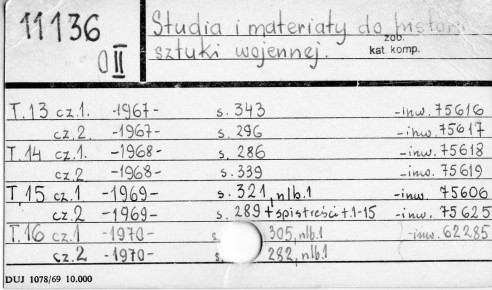 11136
O II
Studia i materiały do historii
sztuki wojennej.
zob.
kat. komp.
T.13 cz.1. -1967- s. 343 -inw. 75616
cz.2. -1967- s. 296 -inw. 75617
T.14 cz.1. -1968- s. 286 -inw. 75618
cz.2. -1968- s. 339 -inw. 75619
T.15 cz.1 -1969- s. 321, nlb.1 -inw. 75606
cz.2 -1969- s. 289 + spis treści t.1-15 -inw. 75625
T.16 cz.1 -1970- s. 305, nlb.1 -inw. 62285
cz.2 -1970- s. 282, nlb.1
DUJ 1078/69 10.000